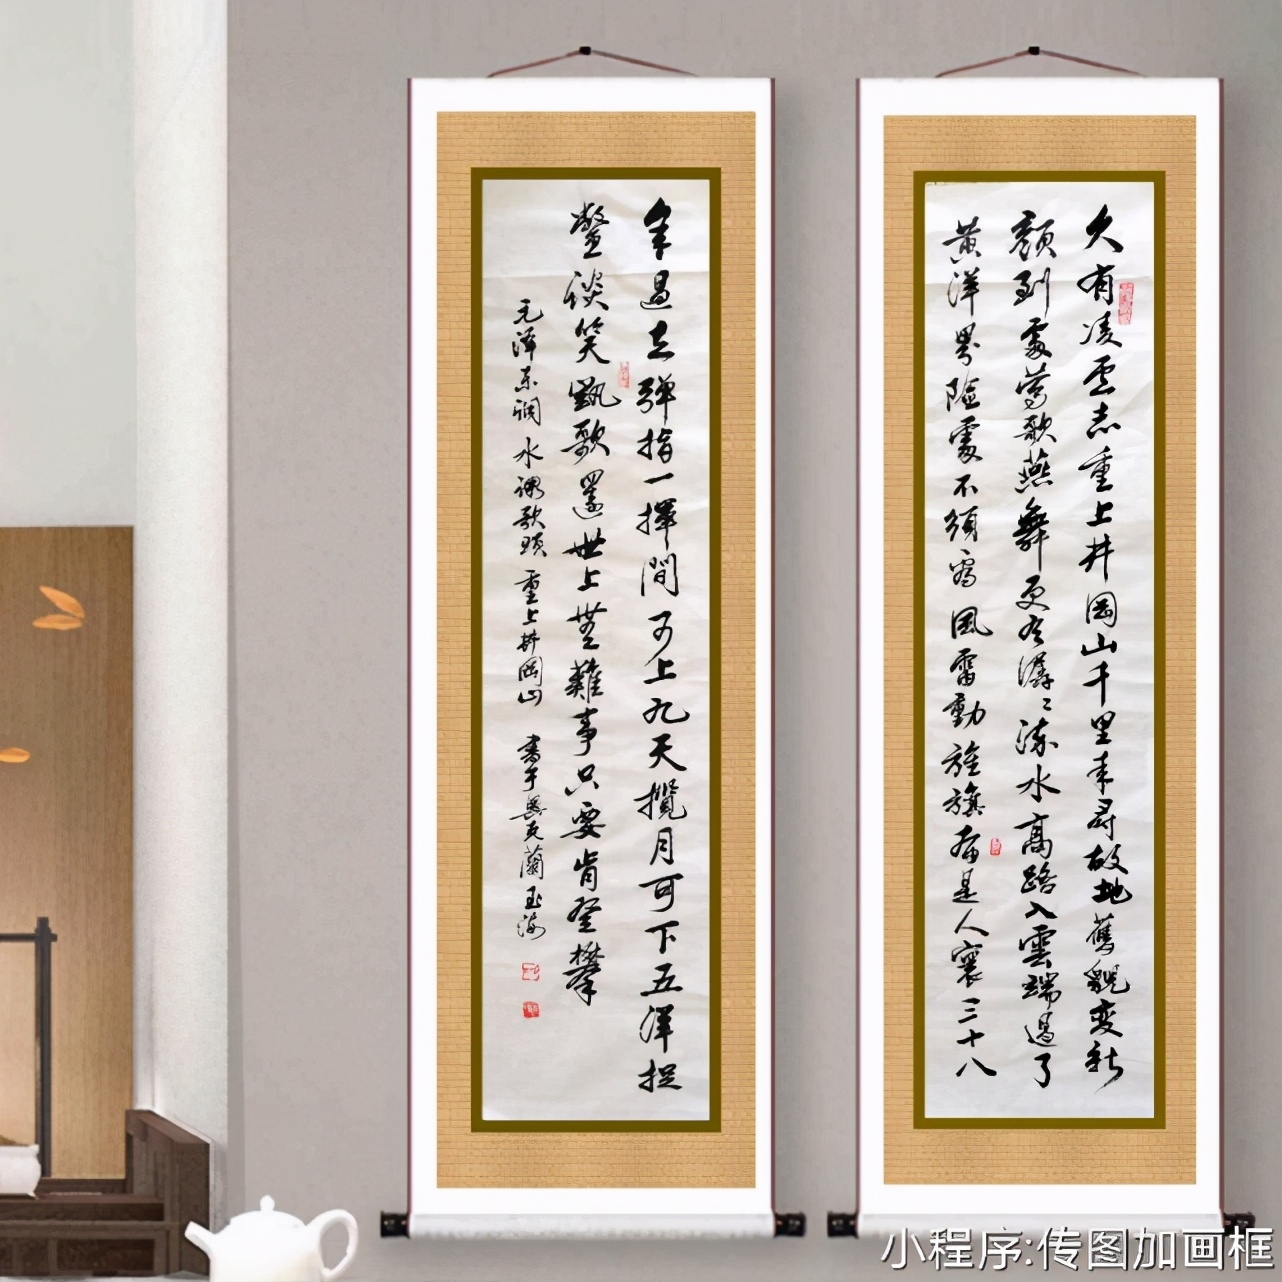 久有凌雲志重上井岡山千里来尋故地舊貌变新
顏到處莺歌燕舞更有潺〻流水高路入雲端過了
黄洋界險處不須看風雷動旌旗奋是人寰三十八
年過去彈指一揮間可上九天攬月可下五洋捉
鱉談笑凱歌還世上無難事只要肯登攀
毛泽东词 水调歌頭 重上井岡山 書于烏克蘭 玉海
小程序:传图加画框